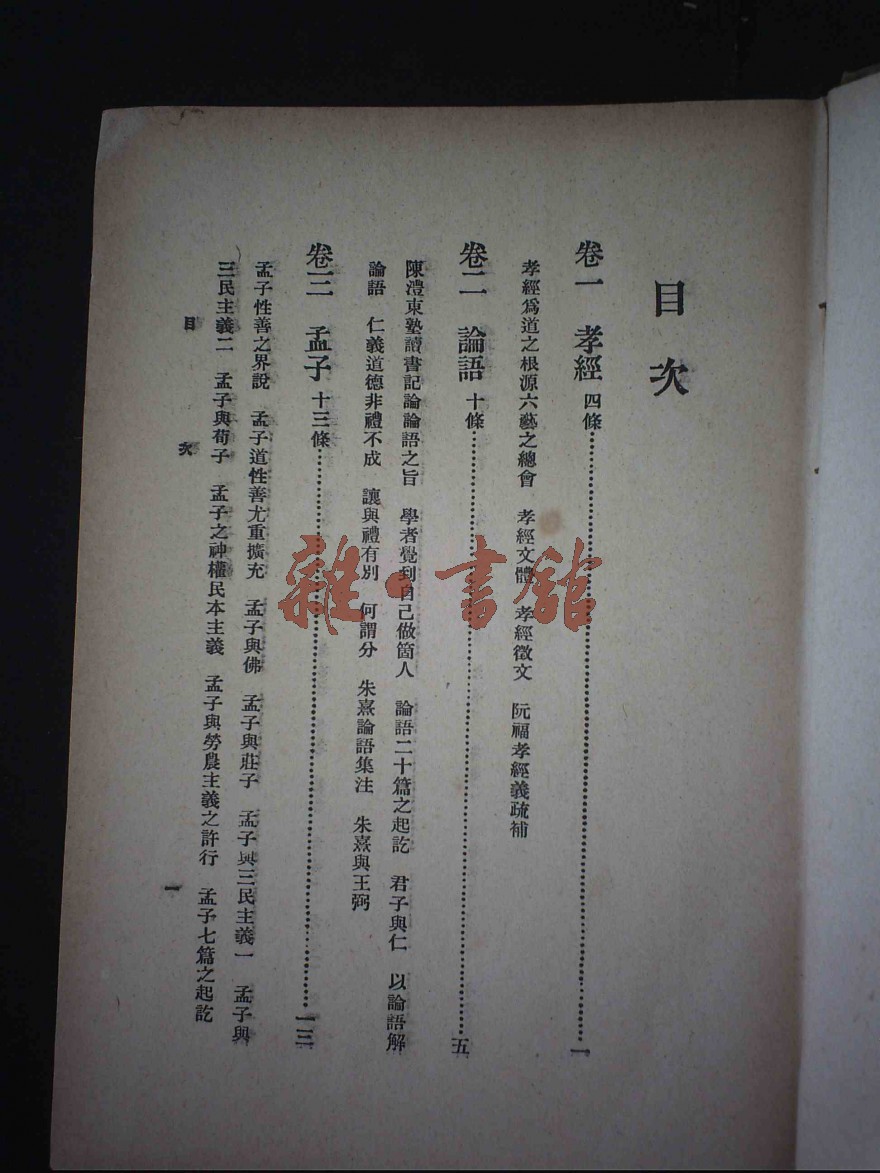 目次
卷一　孝經四條……一
孝經爲道之根源六藝之總會　孝經文體　孝經徵文　阮福孝經義疏補
卷二　論語十條……五
陳澧東塾讀書記論論語之旨　學者覺到自己做箇人　論語二十篇之起訖　君子與仁　以論語解
論語　仁義道德非禮不成　讓與禮有別　何謂分　朱熹論語集注　朱熹與王弼
卷三　孟子十三條……一三
孟子性善之界說　孟子道性善尤重擴充　孟子與佛　孟子與莊子　孟子與三民主義一　孟子與
三民主義二　孟子與荀子　孟子之神權民本主義　孟子與勞農主義之許行　孟子七篇之起訖
目次
一
雜·書館